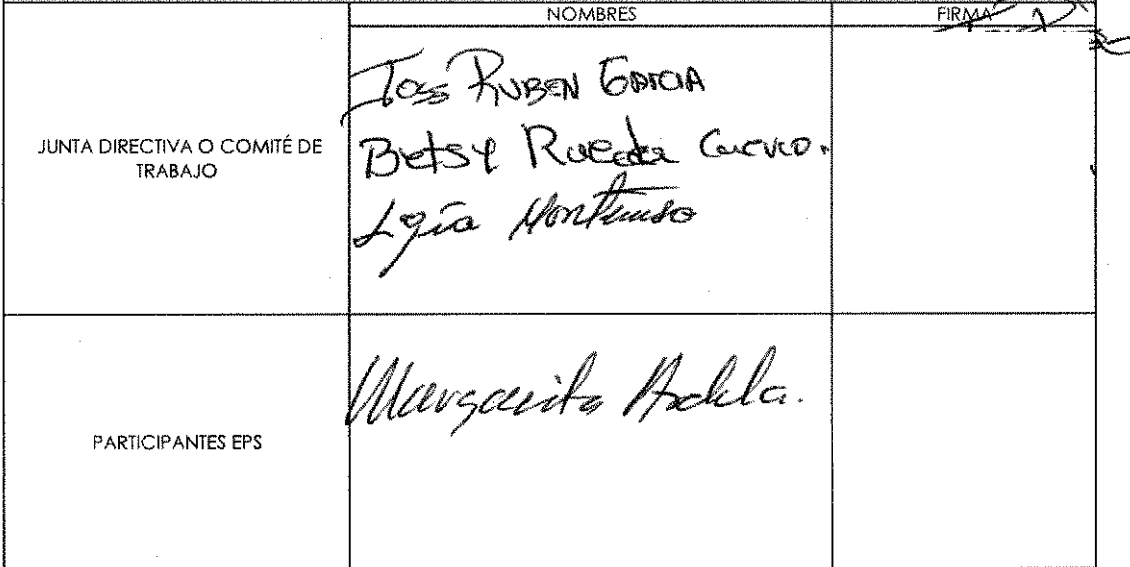 NOMBRES FIRMA
JUNTA DIRECTIVA O COMITÉ DE
TRABAJO
RUBEN GARCIA
Betsy Rueda Cuervo.
Ligia
PARTICIPANTES EPS
Margarita